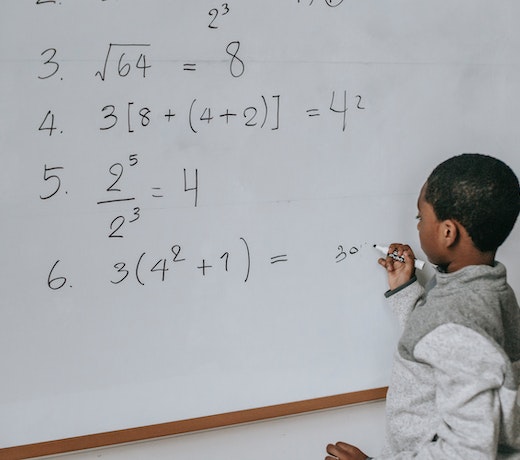 2³
3. √64 = 8
4. 3[8+(4+2)] = 42
5. 2⁵/2³ = 4
6. 3(4²+1) = 30